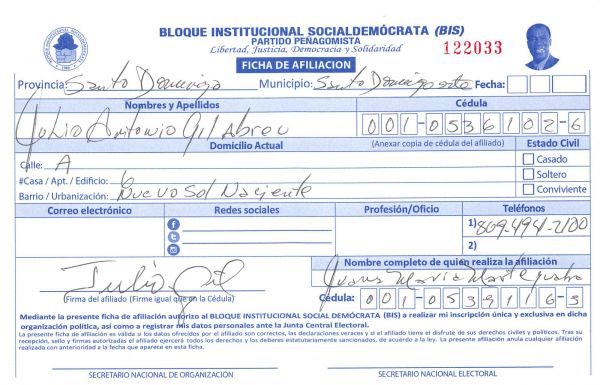 BLOQUE INSTITUCIONAL SOCIALDEMÓCRATA (BIS)
PARTIDO PEÑAGOMISTA
Libertad, Justicia, Democracia y Solidaridad
122033
FICHA DE AFILIACION
Provincia: Santo Domingo Municipio: Santo Domingo este Fecha:
Nombres y Apellidos Cédula
Julio Antonio Gil Abreu 001-0536102-6
Domicilio Actual (Anexar copia de cédula del afiliado) Estado Civil
Calle: A Casado
#Casa / Apt. / Edificio: 6 Soltero
Barrio / Urbanización: Nuevo Sol Naciente Conviviente
Correo electrónico Redes sociales Profesión/Oficio Teléfonos
1) 809-494-2100
2)
Nombre completo de quien realiza la afiliación
Julio Gil Juana Maria
(Firma del afiliado (Firme igual que en la Cédula) Cédula: 001-0539116-3
Mediante la presente ficha de afiliación autorizo al BLOQUE INSTITUCIONAL SOCIAL DEMÓCRATA (BIS) a realizar mi inscripción única y exclusiva en dicha
organización política, así como a registrar mis datos personales ante la Junta Central Electoral.
La presente ficha de afiliación es válida si los datos ofrecidos por el afiliado son correctos, las declaraciones veraces y si el afiliado tiene el disfrute de sus derechos civiles y políticos. Tras su
recepción, sello y firmas autorizadas el afiliado ejercerá todos los derechos y los deberes estatutariamente sancionados, de acuerdo a la ley. La presente afiliación anula cualquier afiliación
realizada con anterioridad a la fecha que aparece en esta ficha.
SECRETARIO NACIONAL DE ORGANIZACIÓN SECRETARIO NACIONAL ELECTORAL